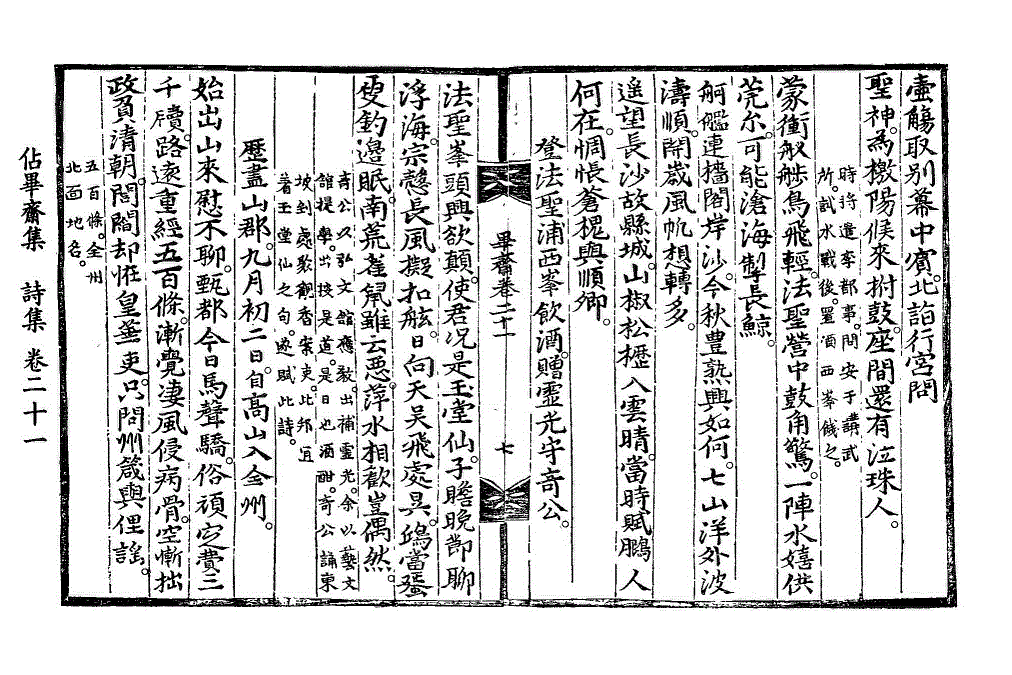 壺觴取別幕中賓。北詣行宮問
聖神。爲檄陽候來拊鼓。座間還有泣珠人。
時將遣李都事。問安于講武
所。試水戰後。置酒西峯餞之。
蒙衝舣舳鳥飛輕。法聖營中鼓角驚。一陣水嬉供
莞尒。可能滄海掣長鯨。
舸艦連檣閣岸沙。今秋豊熟興如何。七山洋外波
濤順。閑歲風帆想轉多。
遥望長沙故縣城。山椒松櫪入雲晴。當時賦鵩人
何在。惆悵蒼榥與順卿。
登法聖浦西峯飮酒。贈靈光守奇公。
畢齋卷二十一
七
法聖峯頭興欲顛。使君况是玉堂仙。子瞻晩節聊
浮海。宗慤長風擬扣舷。日向天吳飛處具。鴻當
更釣邊眠。南荒雀鼠雖云惡。萍水相歡豈偶然。
奇公以弘文館應敎。出補靈光。余以藝文
館提學。出按是道。是日也酒酣。奇公誦東
坡到處聚觀香案吏。此邦宜
著玉堂仙之句。遂賦此詩。
歷盡山郡。九月初二日。自高山入全州。
始出山來慰不聊。甄都今日馬聲驕。俗頑定費三
千牘。路遠重經五百條。漸覺凄風侵病骨。空慚拙
政負淸朝。閭閻却恠皇華吏。只問州箴與俚謠。
五百條。全州
北面地名。
佔畢齋集 詩集 卷二十一